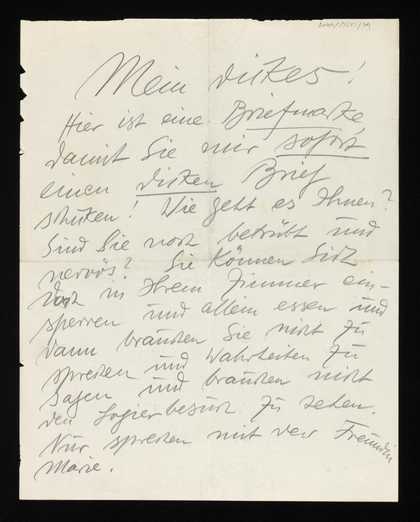 Mein dickes!
Hier ist eine Briefmarke
damit Sie mir sofort
einen dicken Brief
schicken! Wie geht es Ihnen?
Sind Sie noch betrübt und
nervös? Sie können Sich
doch in Ihrem Zimmer ein-
sperren und allein essen und
dann brauchen Sie nicht zu
sprechen und Wahrheiten zu
sagen und brauchen nicht
den Logierbesuch zu sehen.
Nur sprechen mit der Freundin
Marie.